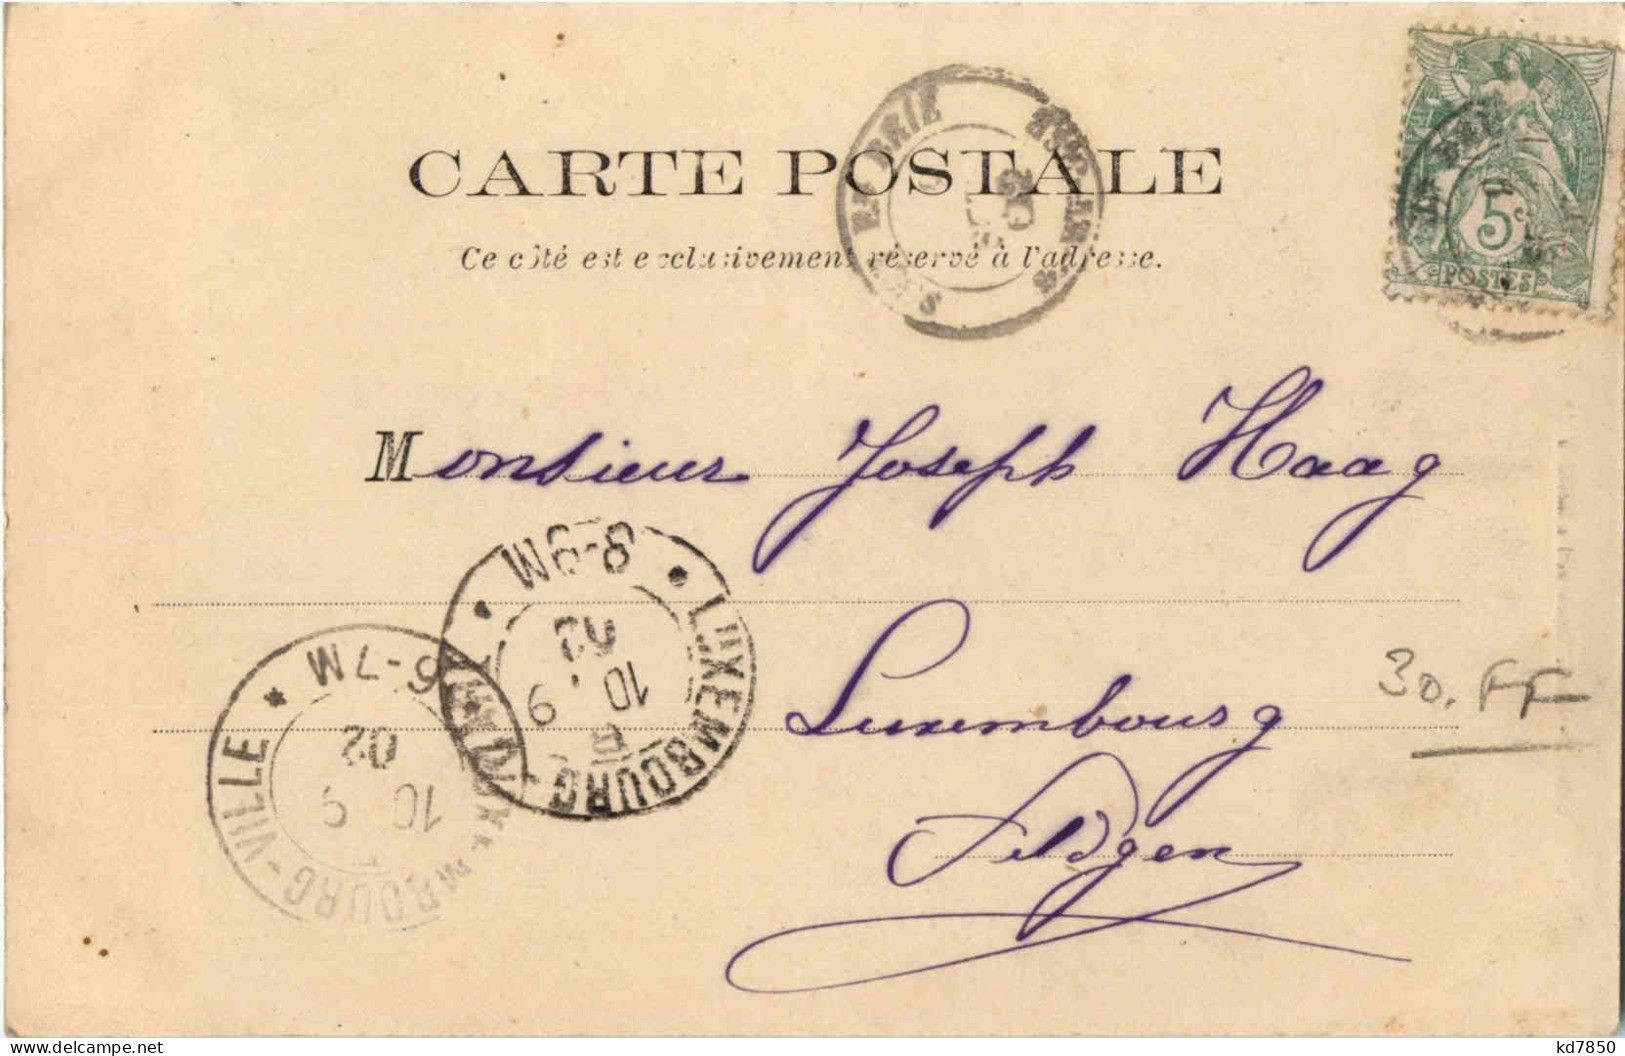 CARTE POSTALE
Ce côté est exclusivement réservé à l'adresse.
5c
POSTES
EN BRIE
Monsieur Joseph Haag
Luxembourg
Feldgen
30.FF
LUXEMBOURG
8-9M
10 9
02
BOURG-VILLE
6-7M
10 9
02
kd7850